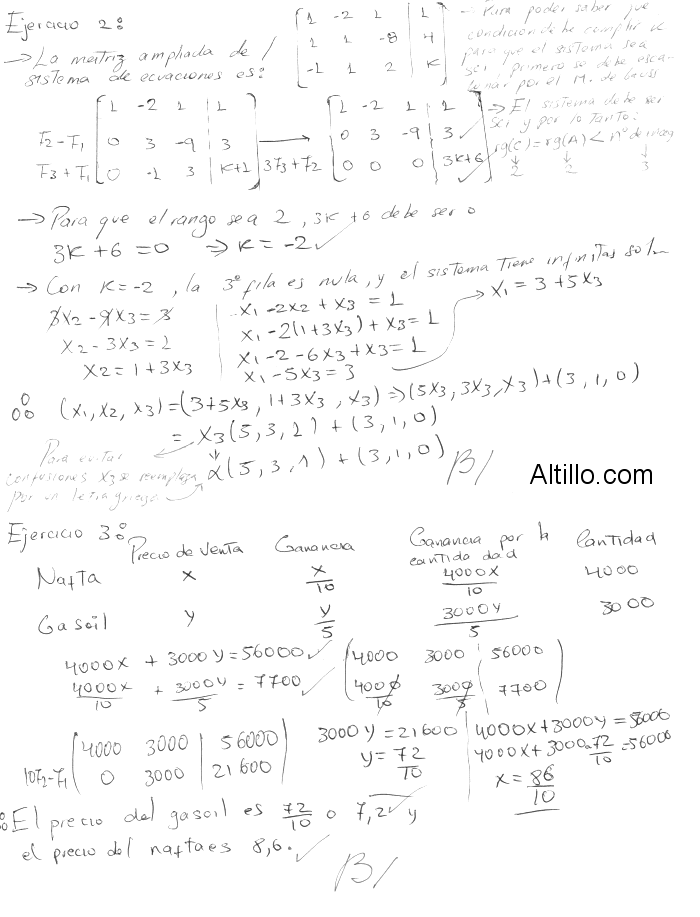 Ejercicio 2:
→ La matriz ampliada del
sistema de ecuaciones es:
[ 1 -2 1 | 1 ]
[ 1 1 -8 | 4 ]
[ -1 1 2 | K ]
→ Para poder saber que
condicion debe cumplir K
para que el sistema sea
SCI primero se debe esca-
lonar por el M. de Gauss
[ 1 -2 1 | 1 ]
F2-F1 [ 0 3 -9 | 3 ]
F3+F1 [ 0 -1 3 | K+1 ] 3F3+F2 →
[ 1 -2 1 | 1 ]
[ 0 3 -9 | 3 ]
[ 0 0 0 | 3K+6 ]
→ El sistema debe ser
SCI y por lo tanto:
rg(C) = rg(A) < nº de incog
↓ ↓ ↓
2 2 3
→ Para que el rango sea 2, 3K+6 debe ser 0
3K+6=0 ⇒ K=-2 ✓
→ Con K=-2, la 3º fila es nula, y el sistema tiene infinitas soln
3X2-9X3=3
X2-3X3=1
X2=1+3X3
X1-2X2+X3=1
X1-2(1+3X3)+X3=1
X1-2-6X3+X3=1
X1-5X3=3
→ X1=3+5X3
∴ (X1,X2,X3)=(3+5X3, 1+3X3, X3) ⇒ (5X3, 3X3, X3)+(3,1,0)
= X3(5,3,1)+(3,1,0)
Para evitar
confusiones X3 se reemplaza
por un letra griega
α(5,3,1)+(3,1,0)
B/
Altillo.com
Ejercicio 3:
Precio de venta Ganancia Ganancia por la cantidad Cantidad
Nafta x x/10 4000x/10 4000
Gasoil y y/5 3000y/5 3000
4000x + 3000y = 56000 ✓
4000x/10 + 3000y/5 = 7700 ✓
( 4000 3000 | 56000 )
( 4000/10 3000/5 | 7700 )
( 4000 3000 | 56000 )
10F2-F1 ( 0 3000 | 21600 )
3000y=21600
y=72/10
4000x+3000y=56000
4000x+3000.72/10=56000
x=86/10
∴ El precio del gasoil es 72/10 o 7,2 ✓ y
el precio del nafta es 8,6. ✓
B/